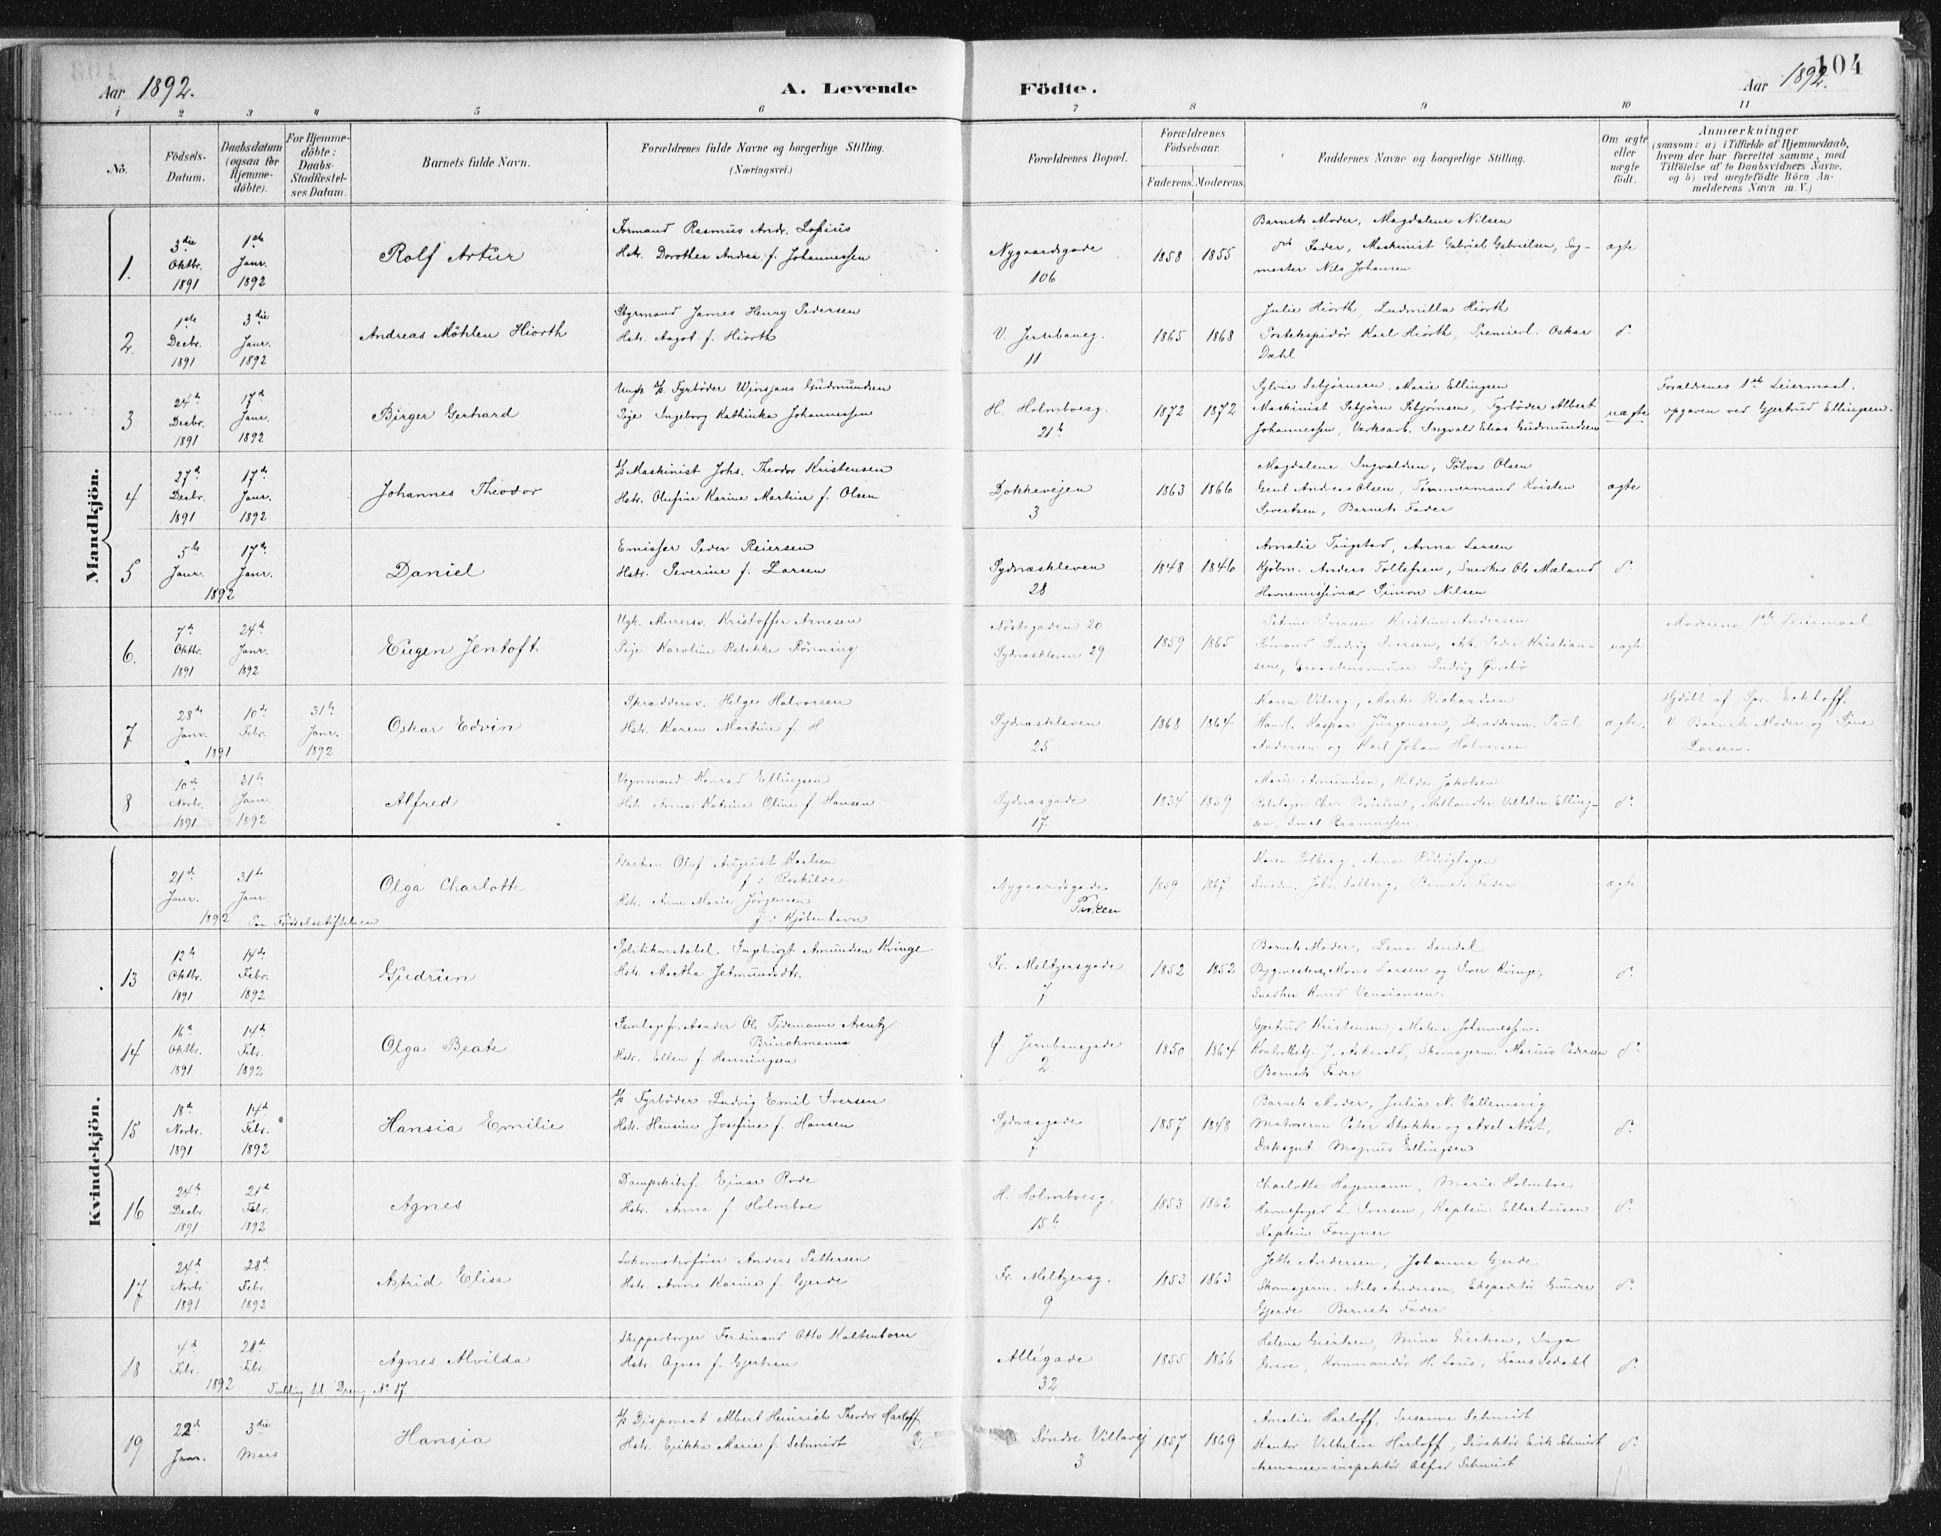 Aar 1892.
A. Levende Födte.
Aar 1892.
104
1 2 3 4 5 6 7 8 9 10 11
No.
Födsels-Datum.
Daabsdatum (ogsaa for Hjemme-döbte).
For Hjemme-döbte: Daabs-Stadfæstel-ses Datum.
Barnets fulde Navn.
Forældrenes fulde Navne og borgerlige Stilling. (Næringsvei.)
Forældrenes Bopæl.
Forældrenes Födselsaar.
Faderens. Moderens.
Faddernes Navne og borgerlige Stilling.
Om ægte eller uægte födt.
Anmærkninger
(saasom: a) i Tilfælde af Hjemmedaab,
hvem der har forrettet samme, med
Tilföielse af to Daabsvidners Navne,
og b) ved uægtefödte Börn An-
melderens Navn m. V.)
Mandkjön.
1. 3die Oktbr. 1891 1ste Janr. 1892
Rolf Artur
Formand Rasmus Andr.
Hstr. Dorothea Andrea f. Johannessen
Nygaardsgade 106
1858 1855
Barnets Moder, Magdalene Nilsen
Fader, Maskinist Gabriel Gabrielsen, Sag-
mester Nils Johansen
ægte
2. 1ste Decbr. 1891 3die Janr. 1892
Andreas Möhlen Hiorth
Styrmand James Henry Pedersen
Hstr. Aagot f. Hiorth
V. Jernbaneg. 11
1865 1868
Julie Hiorth, Ludmilla Hiorth
Postekspidör Karl Hiorth, Premierl. Oskar
Dahl
d°
3 24de Decbr. 1891 17de Janr. 1892
Birger Gerhard
Ungk. Fyrböder Gudmundsen
Pige Ingeborg Kathinka Johannessen
H. Holmboesg. 21b
1872 1872
Marie Ellingsen
Maskinist Fyrböder Albert
Johannessen, Værksarb. Ingvald Elias Gudmundsen
uægte
Forældrenes 1ste Leiermaal.
opgaven ved Gjertrud Ellingsen.
4 27de Decbr. 1891 17de Janr. 1892
Johannes Theodor
Maskinist Johs. Theodor Kristensen
Hstr. Olufine Karine Martine f. Olsen
Dokkevejen 3
1863 1866
Magdalene Ingvaldsen, Olsen
Andreas Olsen, Tömmermand Kristen
Sivertsen, Barnets Fader
ægte
5 5te Janr. 17de Janr. 1892
Daniel
Emissær Peder Reiersen
Hstr. Severine f. Larsen
Sydnæskleven 28
1848 1846
Amalie Tingstad, Anna Larsen
Kjöbm. Anders Tollefsen, Snedker Ole Mæland
Havnemissionær Simon Nilsen
d°
6. 7de Oktbr. 1891 24de Janr. 1892
Eugen Jentoft
Ugk. Murersv. Kristoffer Arnesen
Pige Karoline Rebekke Rönning
Nöstegaden 20
Sydnæskleven 29
1859 1865
Petrine Iversen Kristine Andersen
Sömand Ludvig Iversen, Arb. Peder Kristian-
sen, Ludvig
uægte
Moderens 1ste Leiermaal
7 28de Janr. 1891 10de Febr. 31te Janr. 1892
Oskar Edvin
Skræddersv. Helge Halvorsen
Hstr. Karen Martine f. H
Sydnæskleven 25
1868 1864
Karen Viberg, Marte Richardsen
Handl. Kaspar Jürgensen, Skrædderm. Paul
Andersen og Karl Johan Halvorsen
ægte.
Hjdöbt af Spr. Eckhoff.
V. Barnets Moder og
Larsen.
8 10de Novbr. 1891 31te Janr. 1892
Alfred
Vognmand Konrad Ellingsen
Hstr. Anna Katrine Oline f. Hansen
Sydnæsgade 17
1834 1859
Marie Amundsen, Hilda Jakobsen
Vilhelm Elling-
sen, Rasmussen.
d°
Kvindekjön.
21de Janr. 31te Janr. 1892 Paa Födselsstiftelsen
Olga Charlotte
Olof August Karlsen
f. i Roskilde
Hstr. Anne Marie Jörgensen
f. i Kjöbenhavn
Nygaardsgade
Parken
1859 1867
Karen Solberg, Anna
Smedm. Johs. Solberg, Barnets Fader
ægte
13 12te Oktbr. 1891 14de Febr. 1892
Gudrun
Politikonstabel Ingebrigt Amundsen Kvinge
Hstr. Martha Jetmundsdt.
Fr. Meltzersgade 7
1852 1852
Barnets Moder, Lena Sandal
Bygmester Mons Larsen og Iver Kvinge,
Snedker Knud
d°
14 16de Oktbr. 1891 14de Febr. 1892
Olga Beate
Ol. Tidemann Arentz
Brinchmann
Hstr. Ellen f. Henningsen
Ø Jernbanegade 2
1850 1864
Gjertrud Kristensen, Malene Johannessen.
J. Askevold, Skomagerm. Marius Pedersen
Barnets Fader
d°
15 18de Novbr. 1891 14de Febr. 1892
Hansia Emilie
Fyrböder Ludvig Emil Iversen
Hstr. Hansine Josefine f. Hansen
Sydnæsgade 7
1857 1848
Barnets Moder, Julia N.
Matroserne Peter Stokke og Axel Nöst,
Dæksgut Magnus Ellingsen
d°
16 24de Decbr. 1891 21de Febr. 1892
Agnes
Dampskibsf. Ejnar Rode
Hstr. Anna f. Holmboe
H. Holmboesg. 15b
1853 1862
Charlotte Hagemann, Marie Holmboe
Havnefoged L. Iversen, Kaptein Ellerhusen
Kaptein Fougner
d°
17 24de Novbr. 1891 28de Febr. 1892
Astrid Elisa
Lokomotivförer Anders Pettersen
Hstr. Anne Karine f. Gjerde
Fr. Meltzersg. 9
1853 1863
Jette Andersen, Johanna Gjerde
Skomagerm. Nils Andersen, Ekspeditör Gunder
Gjerde Barnets Fader
d°
18 4de Febr. 28de Febr. 1892 Tvilling til Dreng No 17
Agnes Alvilda
Skipperborger Ferdinand Otto Kaltenborn
Hstr. Agnes f. Gjertsen
Allégade 32
1855 1866
Helene Giertsen, Mina Giertsen, Inga
Greve, Kommandör H. Lous,
d°
19 22de Janr. 3die Mars
Hansia
Disponent Albert Heinrich Theodor Harloff
Hstr. Erikka Marie f. Schmidt
Söndre Villavej 3
1857 1869
Amalie Harloff, Susanne Schmidt
Kantor Vilhelm Harloff, Direktör Erik Schmidt
Assuranse-inspektör Olfer Schmidt
d°